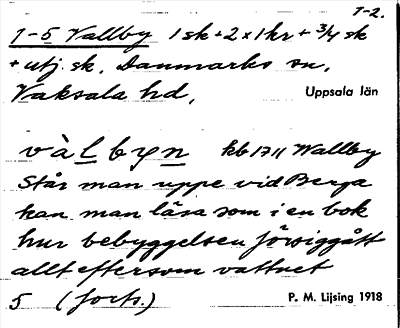 1-2.
1-5 Vallby 1 sk + 2 x 1 kr + 3/4 sk
+ utj. sk, Danmarks sn,
Vaksala hd, Uppsala län
vàlbyn kb 1711 Wallby
Står man uppe vid Berga
kan man läsa som i en bok
hur bebyggelsen försiggått
allt eftersom vattnet
5 (forts.) P. M. Lijsing 1918